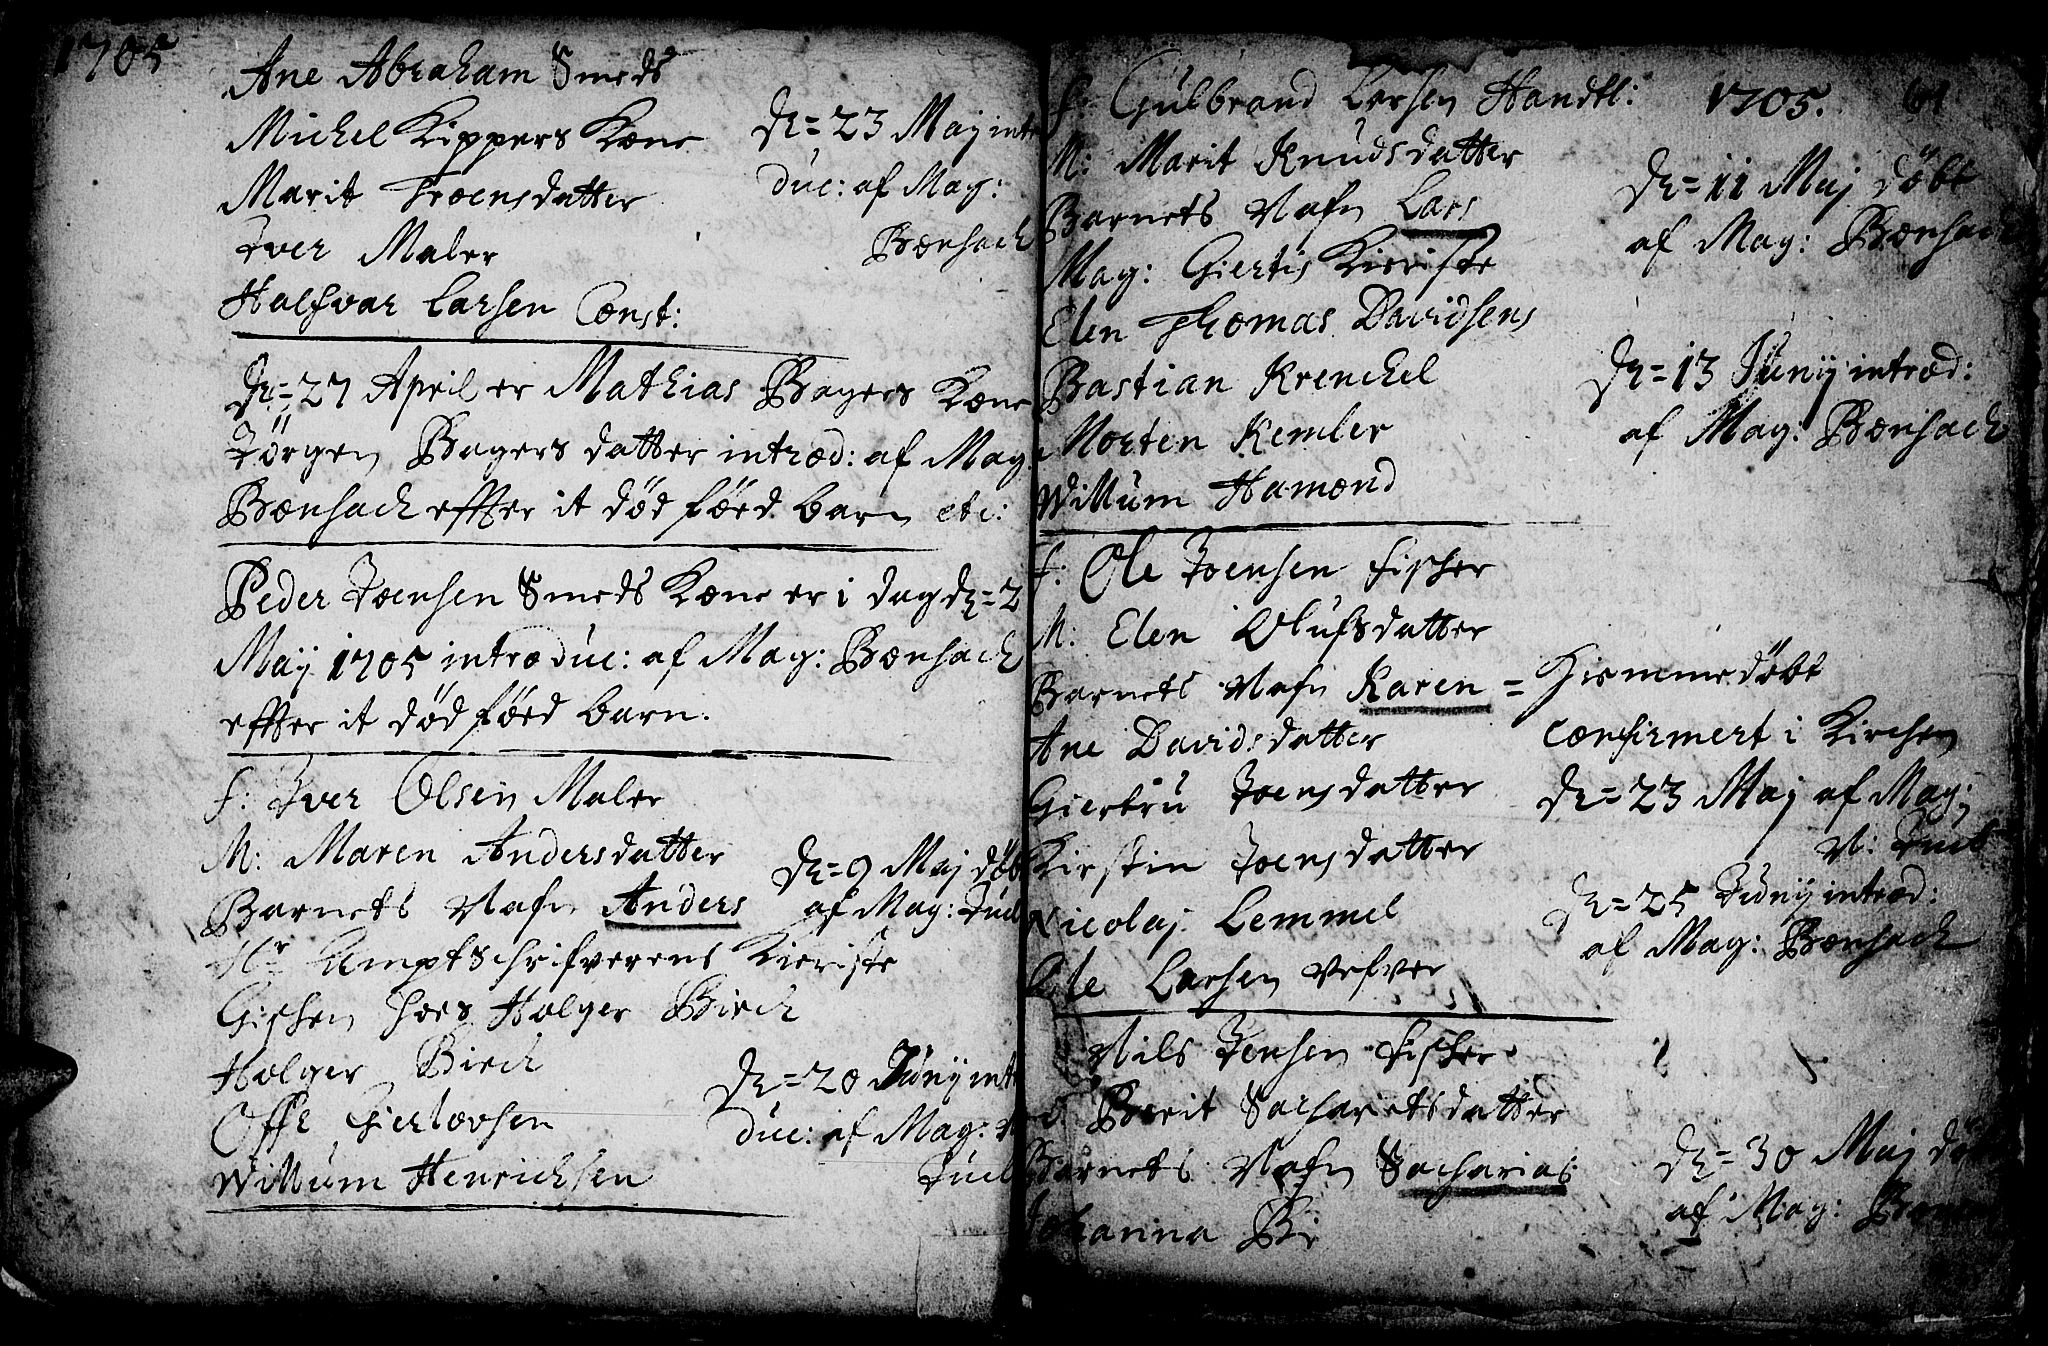 1705
Ane Abraham Smeds
Michel Kippers Kone
Marit Troensdatter
Iver Maler
Halfvor Larsen Const:
D= 23 Maij intro
duc: af Mag:
Bonsach
D= 27 April er Mathias Bagers Kone
Jörgen Bagers datter introd: af Mag:
Bonsach effter it död föed barn etc:
Peder Joensen Smeds Kone er i dag d= 2
Maij 1705 introduc: af Mag: Bonsach
effter it död föed barn.
f: Iver Olsen Maler
M: Maren Andersdatter
Barnets Nafn Anders
Hr Amptschrifverens Kieriste
Gischen Hoes Holger Birch
Holger Birch
Offe Giertovsen
Willum Henrichsen
D= 9 Maj döbt
af Mag: Juel
D= 20 Junij int
duc: af Mag:
Juel
1705. 61
f: Gulbrand Larsen Handtl:
M: Marit Knudsdatter
Barnets Nafn Lars
Mag: Giertis Kieriste
Elen Thomas Davidsens
Bastian Krenchel
Morten Kemler
Willum Hamond
D= 11 Maj döbt
af Mag: Bonsach
D= 13 Junij introd:
af Mag: Bonsach
f: Ole Joensen fischer
M: Elen Olufsdatter
Barnets Nafn Karen = Hiemmedöbt
Ane Davidsdatter
Giertru Joensdatter
Kirstin Joensdatter
Nicolaj Lemmel
Ole Larsen Vefver
confirmert i Kirchen
D= 23 Maj af Mag:
N: Juel
D= 25 Junij introd:
af Mag: Bonsach
Nils Jensen fischer
Berit Sachariasdatter
Barnets Nafn Sacharias
Johanna Bi
D= 30 Maj döbt
af Mag: